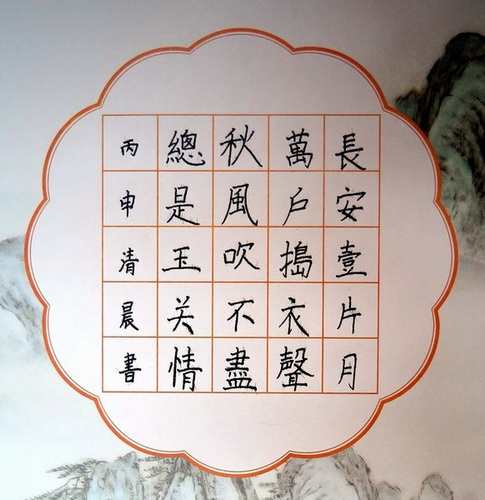 長安壹片月
萬戶搗衣聲
秋風吹不盡
總是玉关情
丙申清晨書